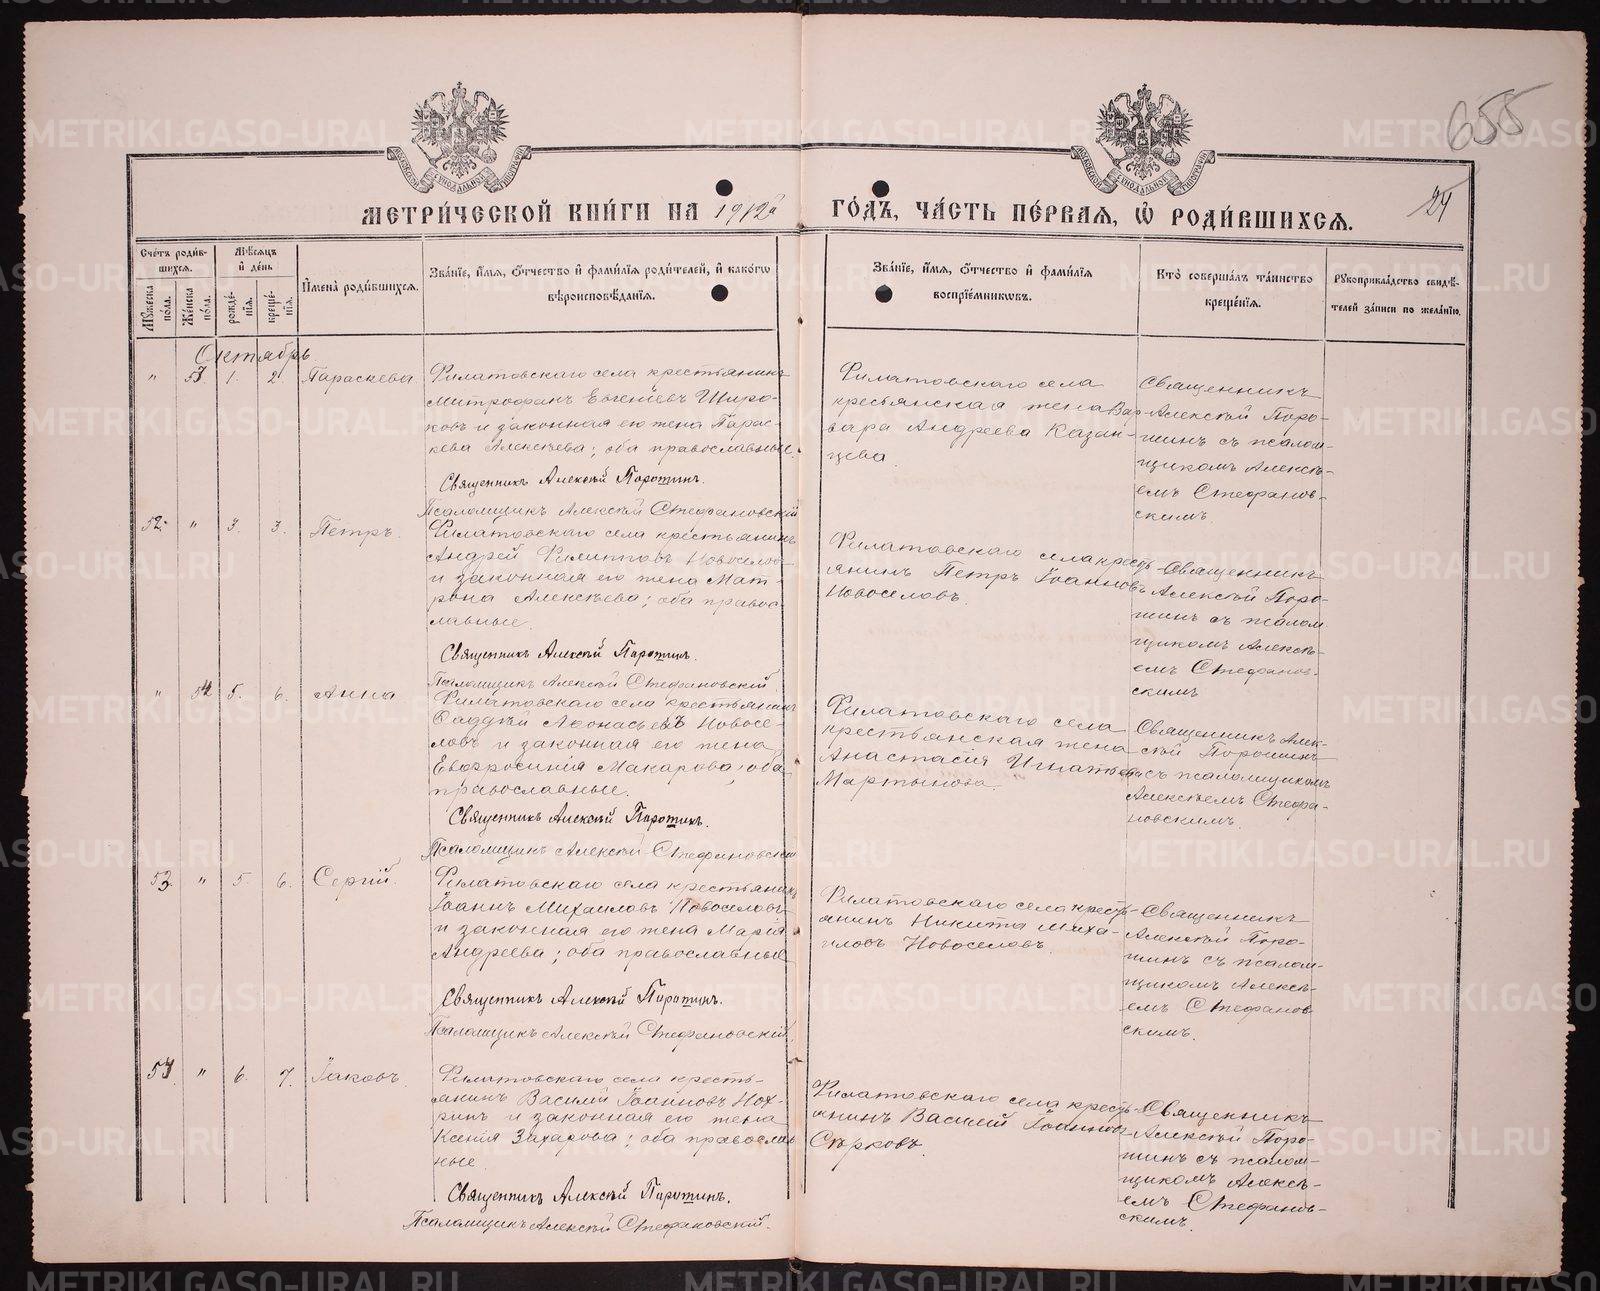 655
24
МЕТРИ́ЧЕСКОЙ КНИ́ГИ НА 1912й ГО́ДЪ, ЧА́СТЬ ПЕ́РВАЯ, Ѡ҆ РОДИ́ВШИХСЯ.
Сче́тъ роди́в-
шихся.
Мѣ́сяцъ
и҆ де́нь
Мꙋ́жеска
пола.
Же́нска
пола.
рожде́-
нїя.
креще́-
нїя.
И҆мена̀ роди́вшихся.
Зва́нїе, и҆́мя, ѻ҆́тчество и҆ фами́лїя роди́телей, и҆ како́гѡ
вѣроисповѣ́данїя.
Зва́нїе, и҆́мя, ѻ҆́тчество и҆ фами́лїя
воспрїе́мникѡвъ.
Кто̀ соверша́лъ та́инство
креще́нїя.
Рꙋкоприкла́дство свидѣ́-
телей за́писи по жела́нїю.
Октябрь.
" 53 1. 2. Параскева
Филатовскаго села крестьянинъ
Митрофанъ Евгеніевъ Широ-
ковъ и законная его жена Парас-
кева Алексѣева; оба православные.
Священникъ Алексѣй Поротинъ.
Псаломщикъ Алексѣй Стефановскій
Филатовскаго села
кресьянская жена Вар-
вара Андреева Казан-
цева.
Священникъ
Алексѣй Поро-
тинъ съ псалом-
щикомъ Алексѣ-
емъ Стефанов-
скимъ.
52. " 3. 3. Петръ.
Филатовскаго села крестьянинъ
Андрей Филиповъ Новоселовъ
и законная его жена Мат-
рона Алексѣева; оба правос-
лавные.
Священникъ Алексѣй Поротинъ.
Псаломщикъ Алексѣй Стефановскій.
Филатовскаго села кресть-
янинъ Петръ Іоанновъ
Новоселовъ.
Священникъ
Алексѣй Поро-
тинъ съ псалом
щикомъ Алексѣ-
емъ Стефанов-
скимъ
" 54 5. 6. Анна
Филатовскаго села крестьянинъ
Фаддѣй Афонасьевъ Новосе-
ловъ и законная его жена
Евфросинія Макарова; оба
православные.
Священникъ Алексѣй Поротинъ.
Псаломщикъ Алексѣй Стефановскій
Филатовскаго села
крестьянская жена
Анастасія Игнатьева
Мартынова.
Священникъ Алек-
сѣй Поротинъ
съ псаломщикомъ
Алексѣемъ Стефа-
новскимъ.
53. " 5. 6. Сергій.
Филатовскаго села крестьянинъ
Іоаннъ Михаиловъ Новоселовъ
и законная его жена Марія
Андреева; оба православные
Священникъ Алексѣй Поротинъ.
Псаломщикъ Алексѣй Стефановскій.
Филатовскаго села кресть-
янинъ Никита Миха-
иловъ Новоселовъ.
Священникъ
Алексѣй Поро-
тинъ съ псалом-
щикомъ Алексѣ-
емъ Стефанов
скимъ.
54. " 6. 7. Іаковъ.
Филатовскаго села кресть-
янинъ Василій Іоанновъ Нох-
ринъ и законная его жена
Ксенія Захарова; оба православ
ные.
Священникъ Алексѣй Поротинъ.
Псаломщикъ Алексѣй Стефановскій.
Филатовскаго села кресть-
янинъ Василій Іоанновъ
Сѣрковъ.
Священникъ
Алексѣй Поро-
тинъ съ псалом-
щикомъ Алексѣ-
емъ Стефанов-
скимъ.